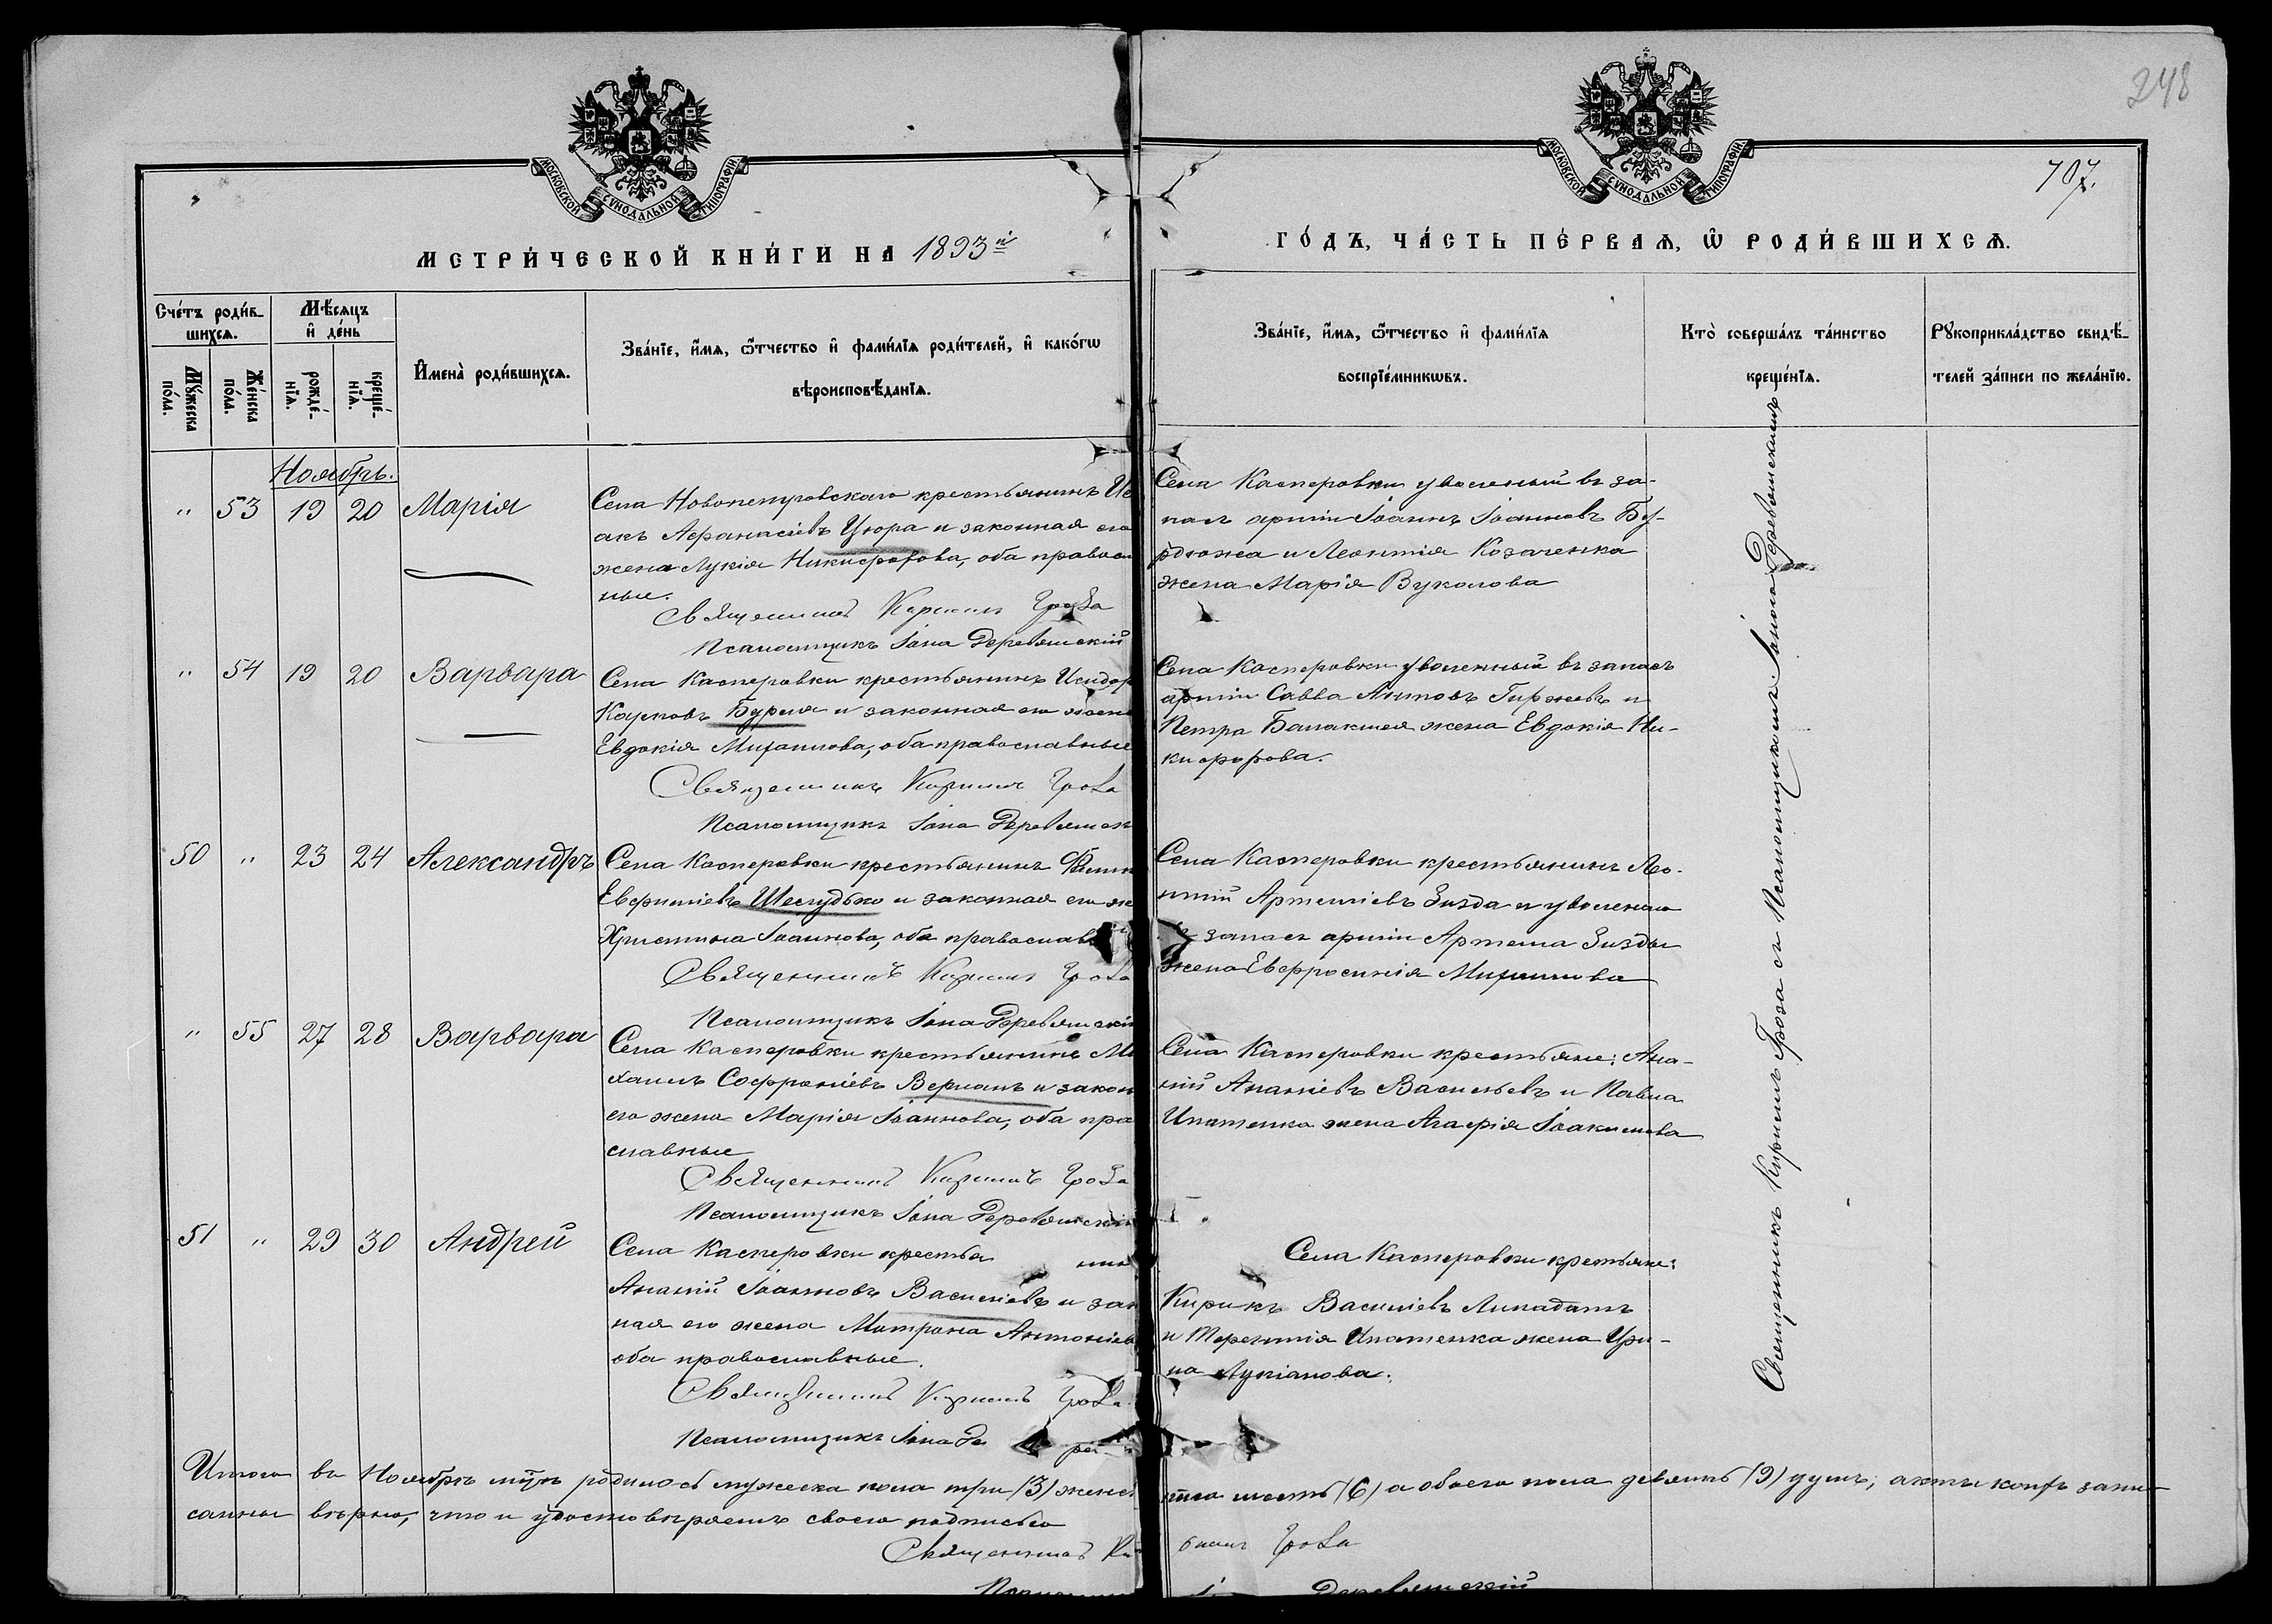 248
707.
МОСКОВСКОЙ СѴНОДАЛЬНОЙ ТИПОГРАФІИ
МОСКОВСКОЙ СѴНОДАЛЬНОЙ ТИПОГРАФІИ
МЕТРИ́ЧЕСКОЙ КНИ́ГИ НА 1893й
ГО́ДЪ, ЧА́СТЬ ПЕ́РВАѦ, Ѡ҆ РОДИ́ВШИХСѦ.
Сче́тъ роди́в-
шихсѧ.
Мѣ́сѧцъ
и҆ де́нь
Мꙋ́жеска
по́ла.
Же́нска
по́ла.
рожде́-
нїѧ.
креще́-
нїѧ.
И҆мена̀ роди́вшихсѧ.
Зва́нїе, и҆́мѧ, ѻ҆́тчество и҆ фами́лїѧ роди́телей, и҆ како́гѡ
вѣроисповѣ́данїѧ.
Зва́нїе, и҆́мѧ, ѻ҆́тчество и҆ фами́лїѧ
воспрїе́мникѡвъ.
Кто̀ соверша́лъ та́инство
креще́нїѧ.
Рꙋкоприкла́дство свидѣ́-
телей за́писи по жела́нїю.
Ноябрь.
" 53 19 20 Марія
Села Новопетровскаго крестьянинъ Ис
акъ Афанасіевъ Цюра и законная его
жена Лукія Никифорова, оба правосл
ные.
Священникъ Кириллъ Гроза
Псаломщикъ Іона Деревянскій
Села Касперовки уволенный въ за-
пасъ арміи Іоаннъ Іоанновъ Бу-
рдюжа и Леонтія Козаченка
жена Марія Вуколова
" 54 19 20 Варвара
Села Касперовки крестьянинъ Исидор
Карповъ Бурля и законная его жена
Евдокія Михаилова, оба православные
Священникъ Кириллъ Гроза
Псаломщикъ Іона Деревянск
Села Касперовки уволенный въ запасъ
арміи Савва Гиржевъ и
Петра жена Евдокія Ни-
кифорова.
50 " 23 24 Александръ
Села Касперовки крестьянинъ Филип
Евфиміевъ Шелудько и законная его же
Христина Іоаннова, оба православ
Священникъ Кириллъ Гроза
Псаломщикъ Іона Деревянскій
Села Касперовки крестьянинъ Лео-
нтій Артеміевъ Зизда и уволеннаго
въ запасъ арміи Артема Зизды
жена Евфросинія Михаилова
" 55 27 28 Варвара
Села Касперовки крестьянинъ Ми
хаилъ Софроніевъ Верланъ и закон
его жена Марія Іоаннова, оба пра
славные
Священникъ Кириллъ Гроза
Псаломщикъ Іона Деревянскій
Села Касперовки крестьяне: Ана-
ній Ананіевъ Васильевъ и Павла
Ипатенка жена Агафія Іоакимова
51 " 29 30 Андрей
Села Касперовки крестья нин
Ананій Іоанновъ Василіевъ и зак
ная его жена Матрона Антоніев
оба православные.
Священникъ Кириллъ Гроза
Псаломщикъ Іона Де
Села Касперовки крестьяне:
Кирикъ Василіевъ Липадатъ
и Терентія Ипатенка жена Ири-
на Лукіанова.
Священникъ Кириллъ Гроза съ Псаломщикомъ Іоною Деревянскимъ
Итого въ Ноябрѣ м҃цѣ родилось мужеска пола три (3) женск
аго шесть (6) а обоего пола девять (9) душъ; акты коихъ запи-
саны вѣрно, что и удостовѣряемъ своею подписью
Священникъ Ки риллъ Гроза
Псаломщ Деревянскій